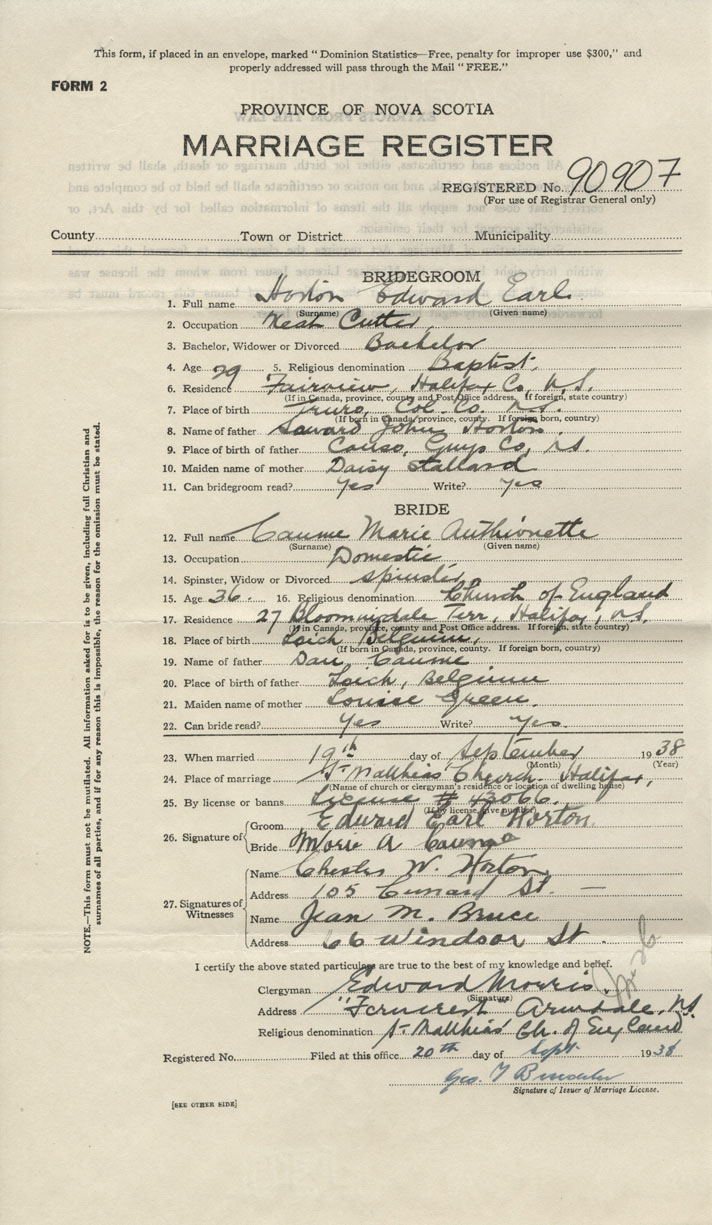 This form, if placed in an envelope, marked "Dominion Statistics—Free, penalty for improper use $300," and
properly addressed will pass through the Mail "FREE."
FORM 2
PROVINCE OF NOVA SCOTIA
MARRIAGE REGISTER
REGISTERED No. 90907
(For use of Registrar General only)
County Town or District Municipality
BRIDEGROOM
1. Full name Horton Edward Earl
(Surname) (Given name)
2. Occupation Meat Cutter
3. Bachelor, Widower or Divorced Bachelor
4. Age 29 5. Religious denomination Baptist.
6. Residence Fairview, Halifax Co, N.S.
(If in Canada, province, county and Post Office address. If foreign, state country)
7. Place of birth Truro, Col. Co. N.S.
(If born in Canada, province, county. If foreign born, country)
8. Name of father John Horton
9. Place of birth of father Canso, Guys Co, N.S.
10. Maiden name of mother Daisy Stallard
11. Can bridegroom read? Yes Write? Yes
BRIDE
12. Full name Caume Marie Anthionette
(Surname) (Given name)
13. Occupation Domestic
14. Spinster, Widow or Divorced Spinster
15. Age 36. 16. Religious denomination Church of England
17. Residence 27 Bloomingdale Terr, Halifax, N.S.
(If in Canada, province, county and Post Office address. If foreign, state country)
18. Place of birth Belgium,
(If born in Canada, province, county. If foreign born, country)
19. Name of father Caume
20. Place of birth of father Belgium
21. Maiden name of mother Louise Green.
22. Can bride read? Yes Write? Yes.
23. When married 19th day of September 1938
(Month) (Year)
24. Place of marriage St Matthias' Church. Halifax,
(Name of church or clergyman's residence or location of dwelling house)
25. By license or banns License # 43066.
(If by license, give number)
26. Signature of
Groom Edward Earl Horton.
Bride Marie A Caume
27. Signatures of Witnesses
Name Chester W. Horton
Address 105 Cunard St. —
Name Jean M. Bruce
Address 66 Windsor St.
I certify the above stated particulars are true to the best of my knowledge and belief.
Clergyman Edward Morris.
(Signature)
Address "Ferncrest Armdale, N.S.
Religious denomination St Matthias' Ch. of England
Registered No. Filed at this office 20th day of Sept. 1938
Geo. T
Signature of Issuer of Marriage License.
[SEE OTHER SIDE]
NOTE.—This form must not be mutilated. All information asked for is to be given, including full Christian and
surnames of all parties, and if for any reason this is impossible, the reason for the omission must be stated.